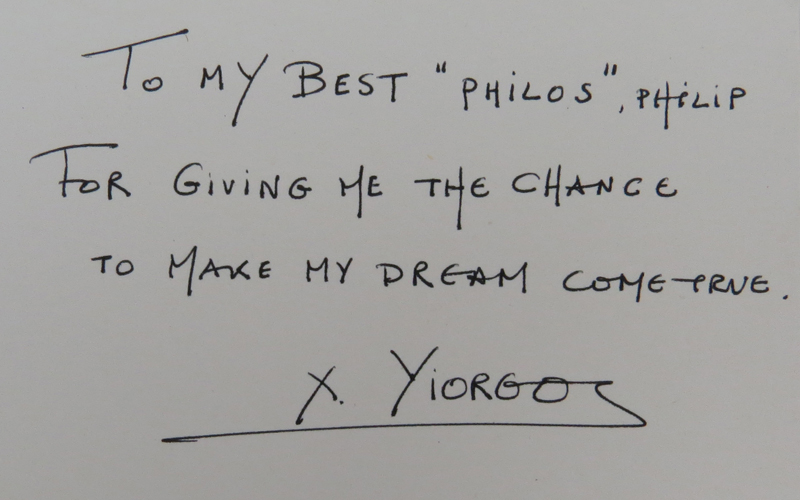 To MY BEST "PHILOS", PHILIP
FOR GIVING ME THE CHANCE
TO MAKE MY DREAM COME TRUE.
X. YIORGOS